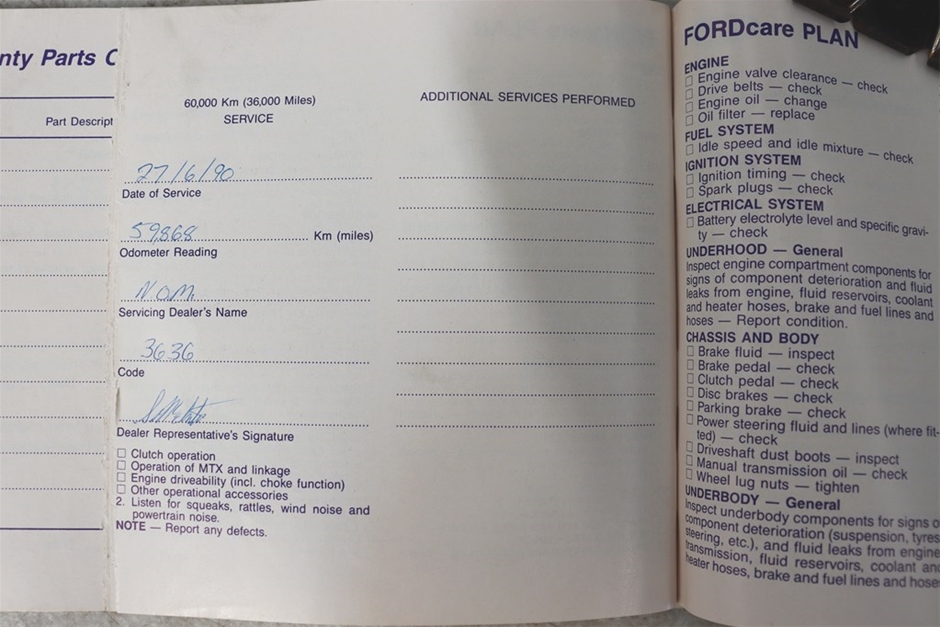 nty Parts C
Part Descript
60,000 Km (36,000 Miles)
SERVICE
27/6/90
Date of Service
59,868 Km (miles)
Odometer Reading
N.O.M.
Servicing Dealer's Name
3636
Code
Dealer Representative's Signature
□ Clutch operation
□ Operation of MTX and linkage
□ Engine driveability (incl. choke function)
□ Other operational accessories
2. Listen for squeaks, rattles, wind noise and
powertrain noise.
NOTE — Report any defects.
ADDITIONAL SERVICES PERFORMED
FORDcare PLAN
ENGINE
□ Engine valve clearance — check
□ Drive belts — check
□ Engine oil — change
□ Oil filter — replace
FUEL SYSTEM
□ Idle speed and idle mixture — check
IGNITION SYSTEM
□ Ignition timing — check
□ Spark plugs — check
ELECTRICAL SYSTEM
□ Battery electrolyte level and specific gravi-
ty — check
UNDERHOOD — General
Inspect engine compartment components for
signs of component deterioration and fluid
leaks from engine, fluid reservoirs, coolant
and heater hoses, brake and fuel lines and
hoses — Report condition.
CHASSIS AND BODY
□ Brake fluid — inspect
□ Brake pedal — check
□ Clutch pedal — check
□ Disc brakes — check
□ Parking brake — check
□ Power steering fluid and lines (where fit-
ted) — check
□ Driveshaft dust boots — inspect
□ Manual transmission oil — check
□ Wheel lug nuts — tighten
UNDERBODY — General
Inspect underbody components for signs o
component deterioration (suspension, tyres
steering, etc.), and fluid leaks from engine
transmission, fluid reservoirs, coolant and
heater hoses, brake and fuel lines and hose